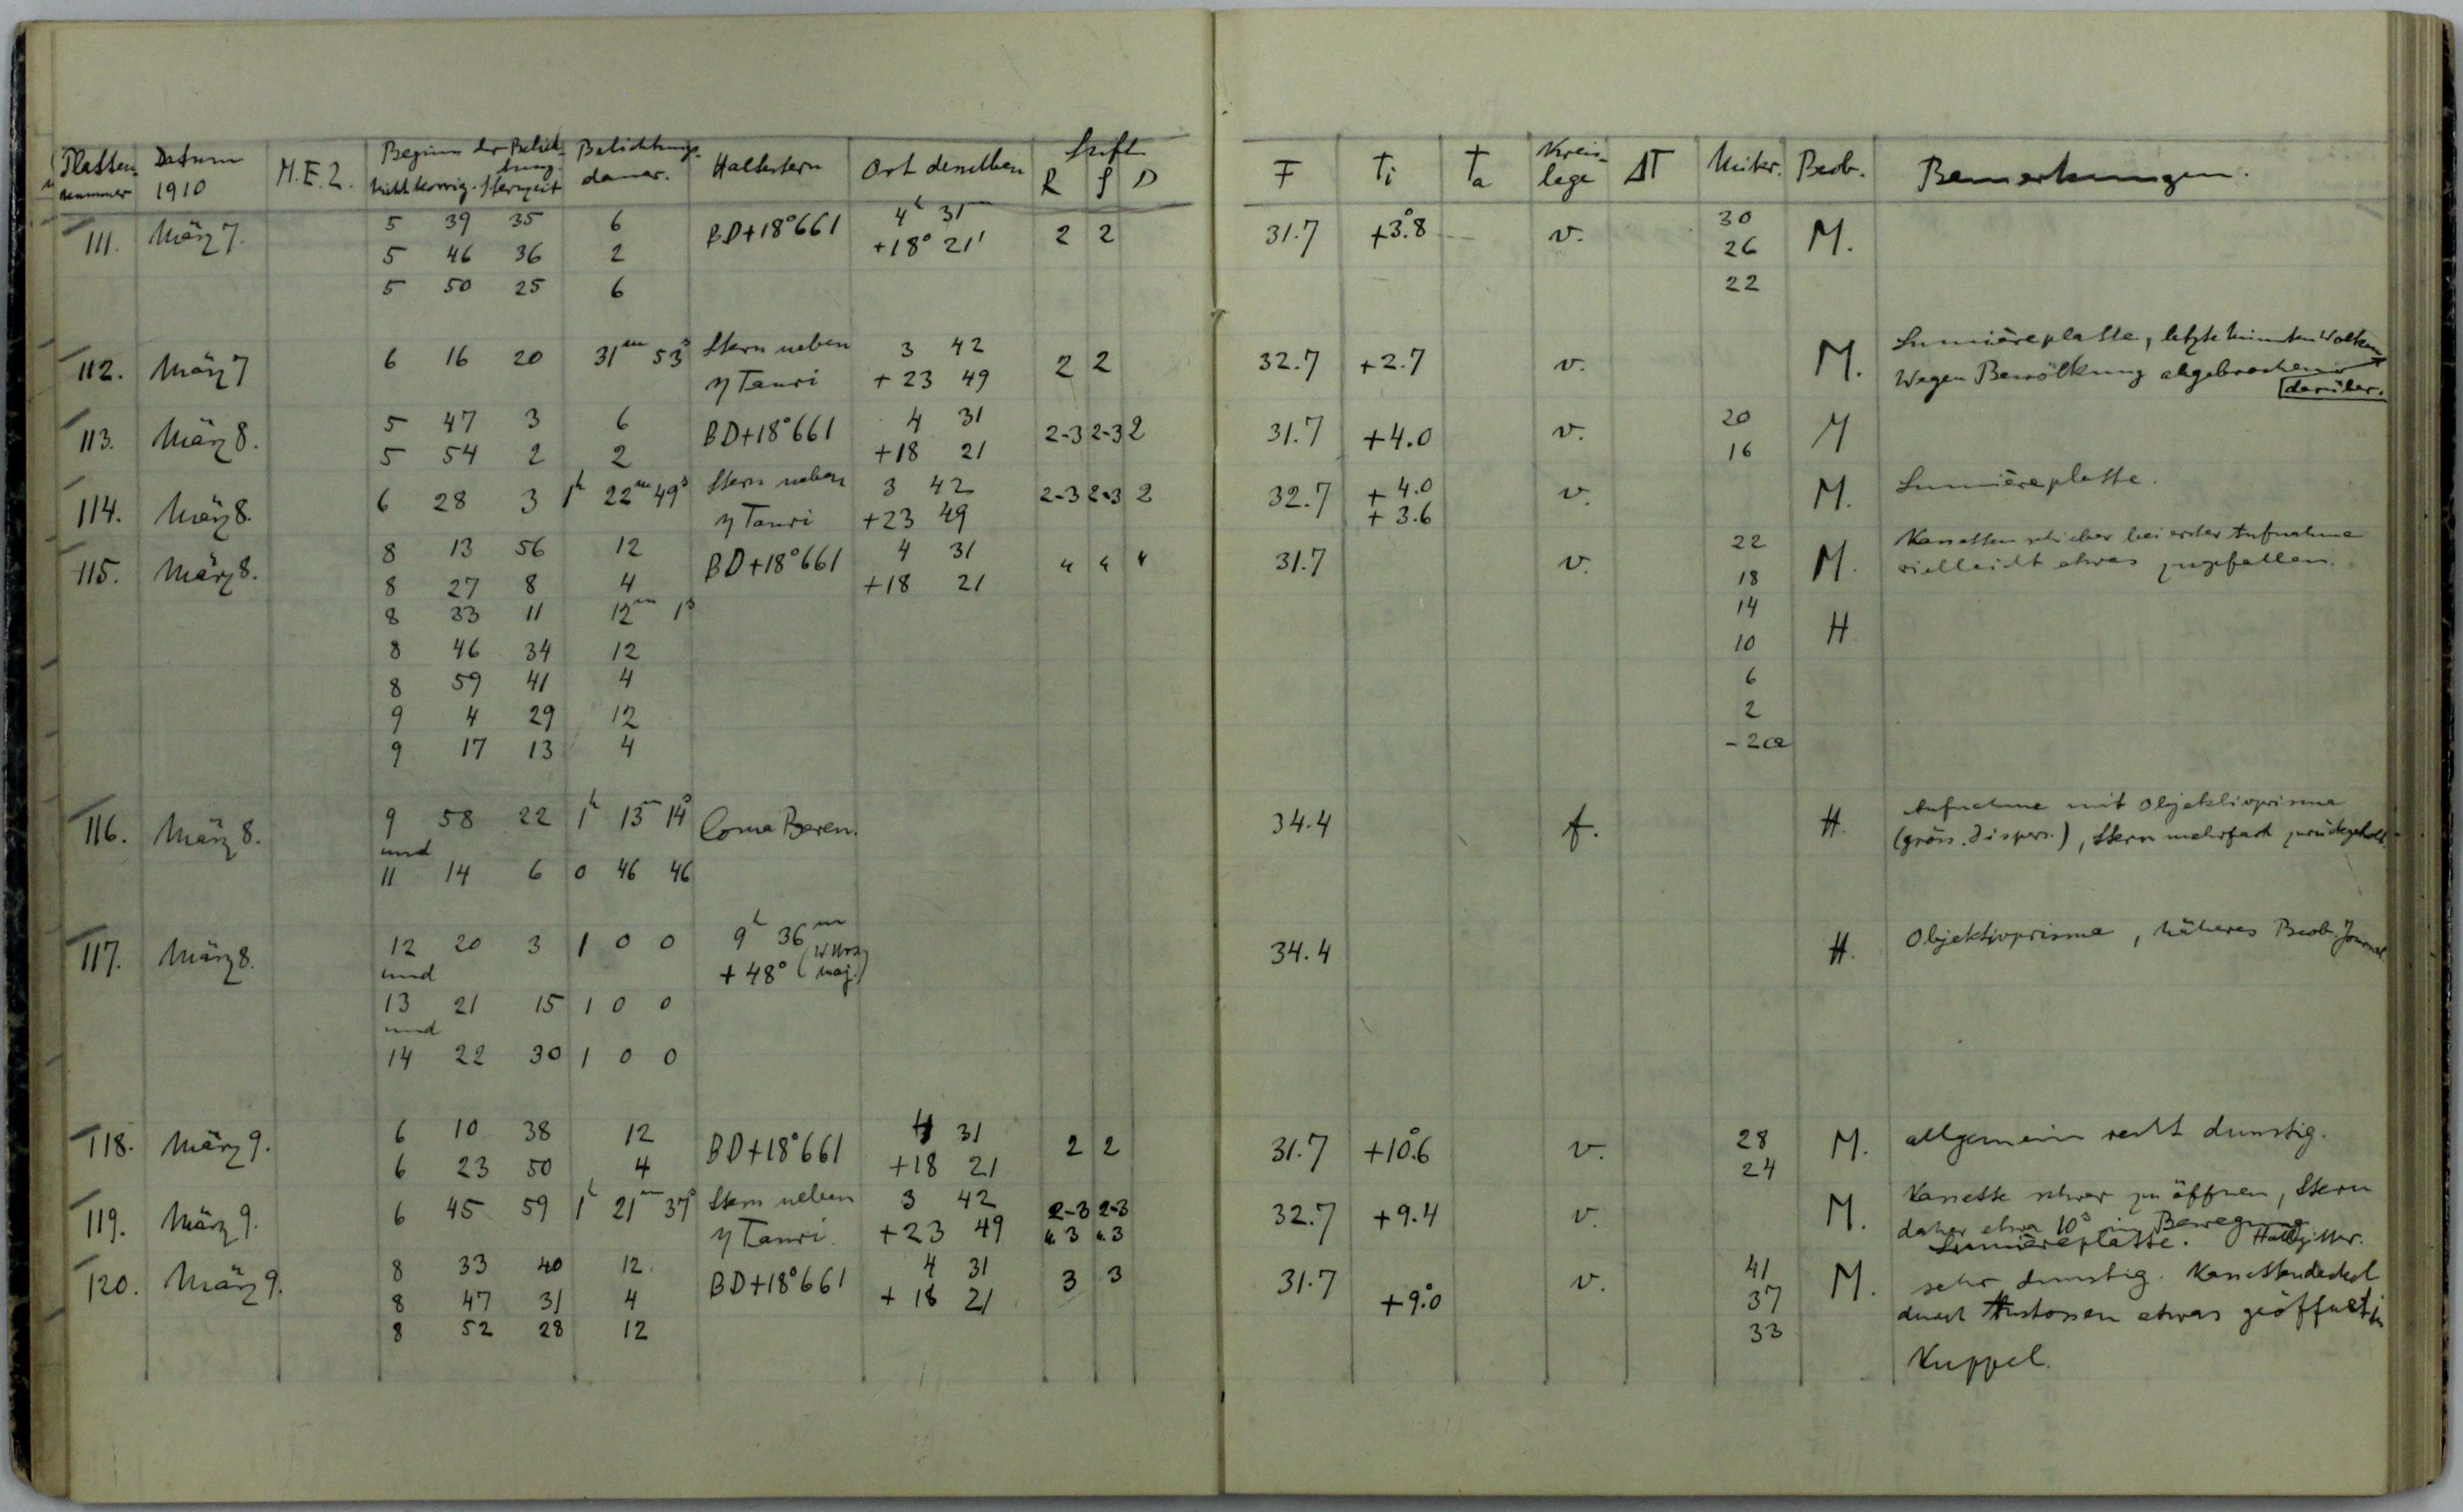 Platten nummer Datum 1910 M.E.Z. Beginn der Belichtung. nicht korrig. Sternzeit Belichtungs-dauer. Haltestern Ort desselben Luft R S D F Ti Ta Kreis-lage ΔT Mikr. Beob. Bemerkungen.
111. März 7. 5 39 35 6 BD+18°661 4h 31m 2 2 31.7 +3°.8 v. 30 M.
5 46 36 2 +18° 21' 26
5 50 25 6 22
112. März 7 6 16 20 31m 53s Stern neben 3 42 2 2 32.7 +2.7 v. M. Lumièreplatte, letzte Minuten Wolken
η Tauri +23 49 Wegen Bewölkung abgebrochen darüber.
113. März 8. 5 47 3 6 BD+18°661 4 31 2-3 2-3 2 31.7 +4.0 v. 20 M
5 54 2 2 +18 21 16
114. März 8. 6 28 3 1h 22m 49s Stern neben 3 42 2-3 2-3 2 32.7 +4.0 v. M. Lumièreplatte.
η Tauri +23 49 +3.6
115. März 8. 8 13 56 12 BD+18°661 4 31 4 4 4 31.7 v. 22 M. Kassettenschieber bei erster Aufnahme
8 27 8 4 +18 21 18 vielleicht etwas zugefallen.
8 33 11 12m 1s 14
8 46 34 12 10 H.
8 59 41 4 6
9 4 29 12 2
9 17 13 4 -2a
116. März 8. 9 58 22 1h 13m 14s Coma Beren. 34.4 f. H. Aufnahme mit Objektivprisma
und (gröss. Dispers.), Stern mehrfach zurückgeholt.
11 14 6 0 46 46
117. März 8. 12 20 3 1 0 0 9h 36m 34.4 H. Objektivprisma, Näheres Beob. Journal.
und +48° (W Urs. Maj.)
13 21 15 1 0 0
und
14 22 30 1 0 0
118. März 9. 6 10 38 12 BD+18°661 4 31 2 2 31.7 +10°.6 v. 28 M. allgemein recht dunstig.
6 23 50 4 +18 21 24
119. März 9. 6 45 59 1h 21m 37s Stern neben 3 42 2-3 2-3 32.7 +9.4 v. M. Kassette schwer zu öffnen, Stern
η Tauri. +23 49 u. 3 u. 3 daher etwa 10s in Bewegung
Lumièreplatte.
120. März 9. 8 33 40 12. BD+18°661 4 31 3 3 31.7 +9°.0 v. 41 M. sehr dunstig. Kassettendeckel
8 47 31 4 +18 21 37 durch Anstossen etwas geöffnet in
8 52 28 12 33
Kuppel.